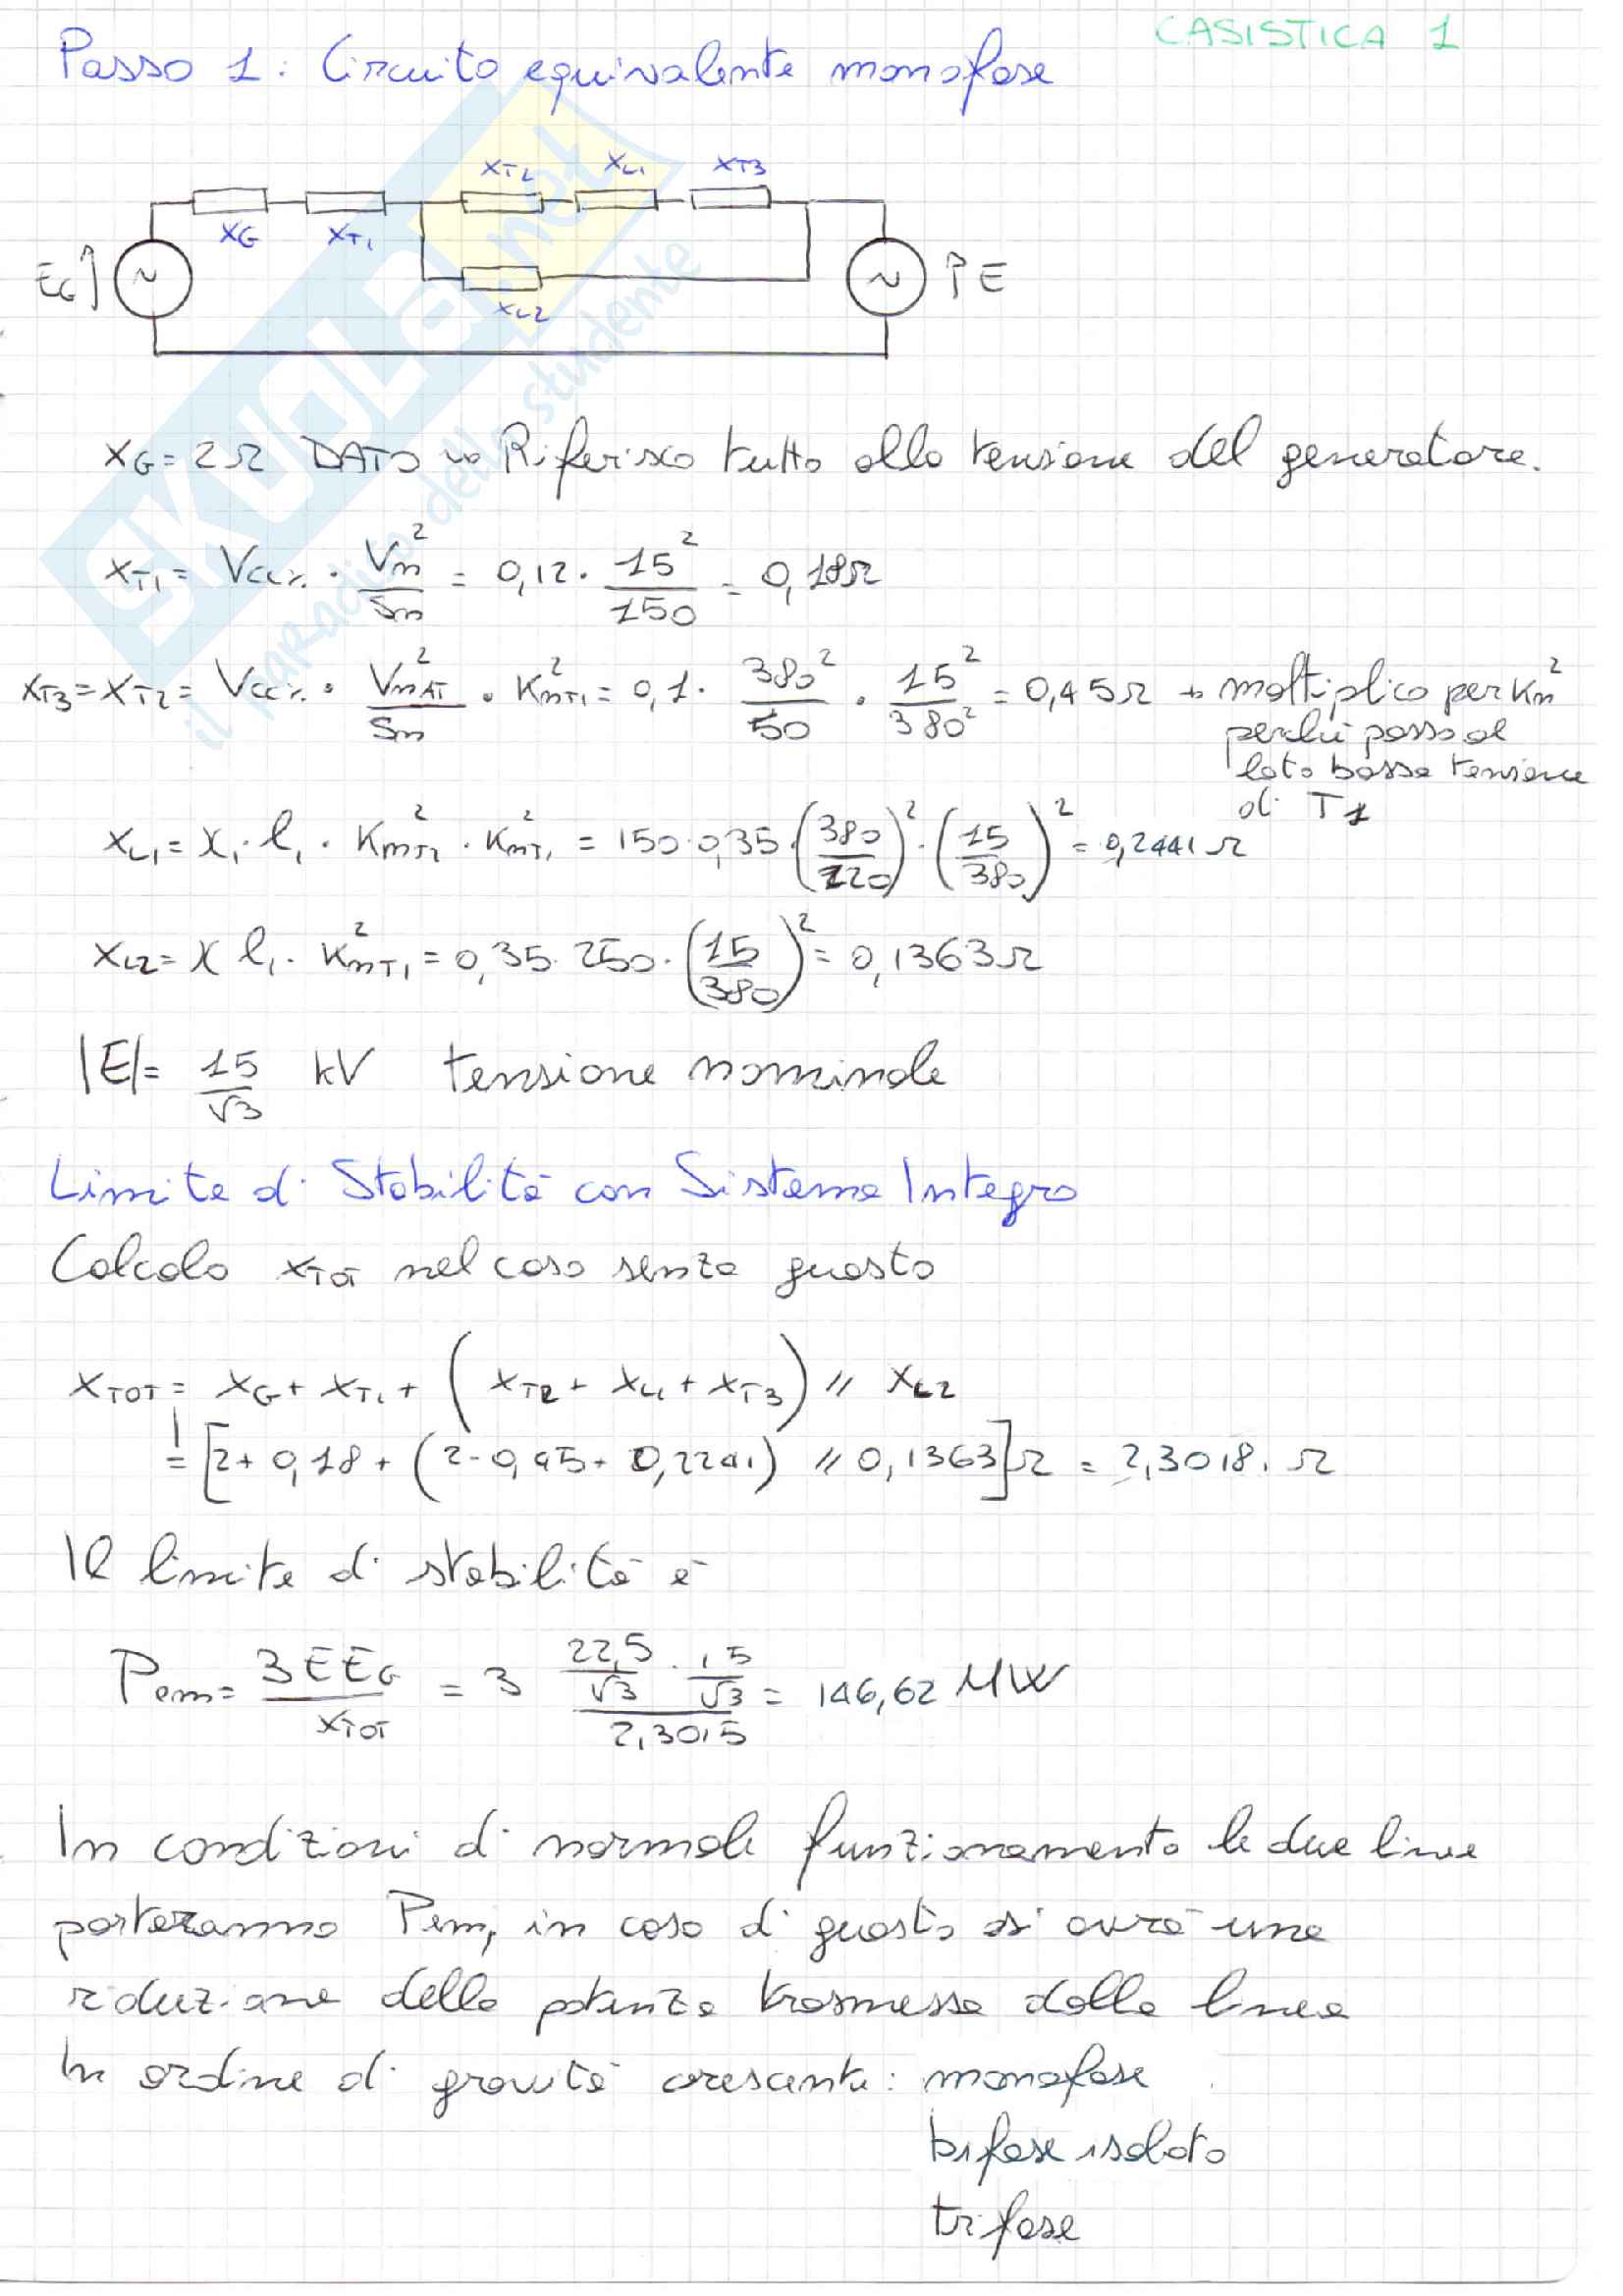 CASISTICA 1
Passo 1: Circuito equivalente monofase
XT2 XL1 XT3
XG XT1
EG E
XL2
XG = 2Ω DATO → Riferisco tutto alla tensione del generatore.
XT1 = Vcc% · Vn²/Sn = 0,12 · 15²/150 = 0,18Ω
XT3 = XT2 = Vcc% · VnAT²/Sn · KnT1² = 0,1 · 380²/50 · 15²/380² = 0,45Ω → moltiplico per Kn²
perché passo al
lato bassa tensione
di T1
XL1 = X1 · l1 · KnT2² · KnT1² = 150·0,35·(380/220)² · (15/380)² = 0,2441Ω
XL2 = X l1 · KnT1² = 0,35·250·(15/380)² = 0,1363Ω
|E| = 15/√3 kV tensione nominale
Limite di Stabilità con Sistema Integro
Calcolo XTOT nel caso senza guasto
XTOT = XG + XT1 + (XT2 + XL1 + XT3) // XL2
= [2 + 0,18 + (2·0,45 + 0,2241) // 0,1363]Ω = 2,3018 Ω
Il limite di stabilità è
Pem = 3EEG/XTOT = 3 22,5/√3 · 15/√3 / 2,3015 = 146,62 MW
In condizioni di normale funzionamento le due linee
porteranno Pem, in caso di guasto si avrà una
riduzione della potenza trasmessa dalla linea
In ordine di gravità crescente: monofase
bifase isolato
trifase
SKUOLA.net
il paradiso dello studente